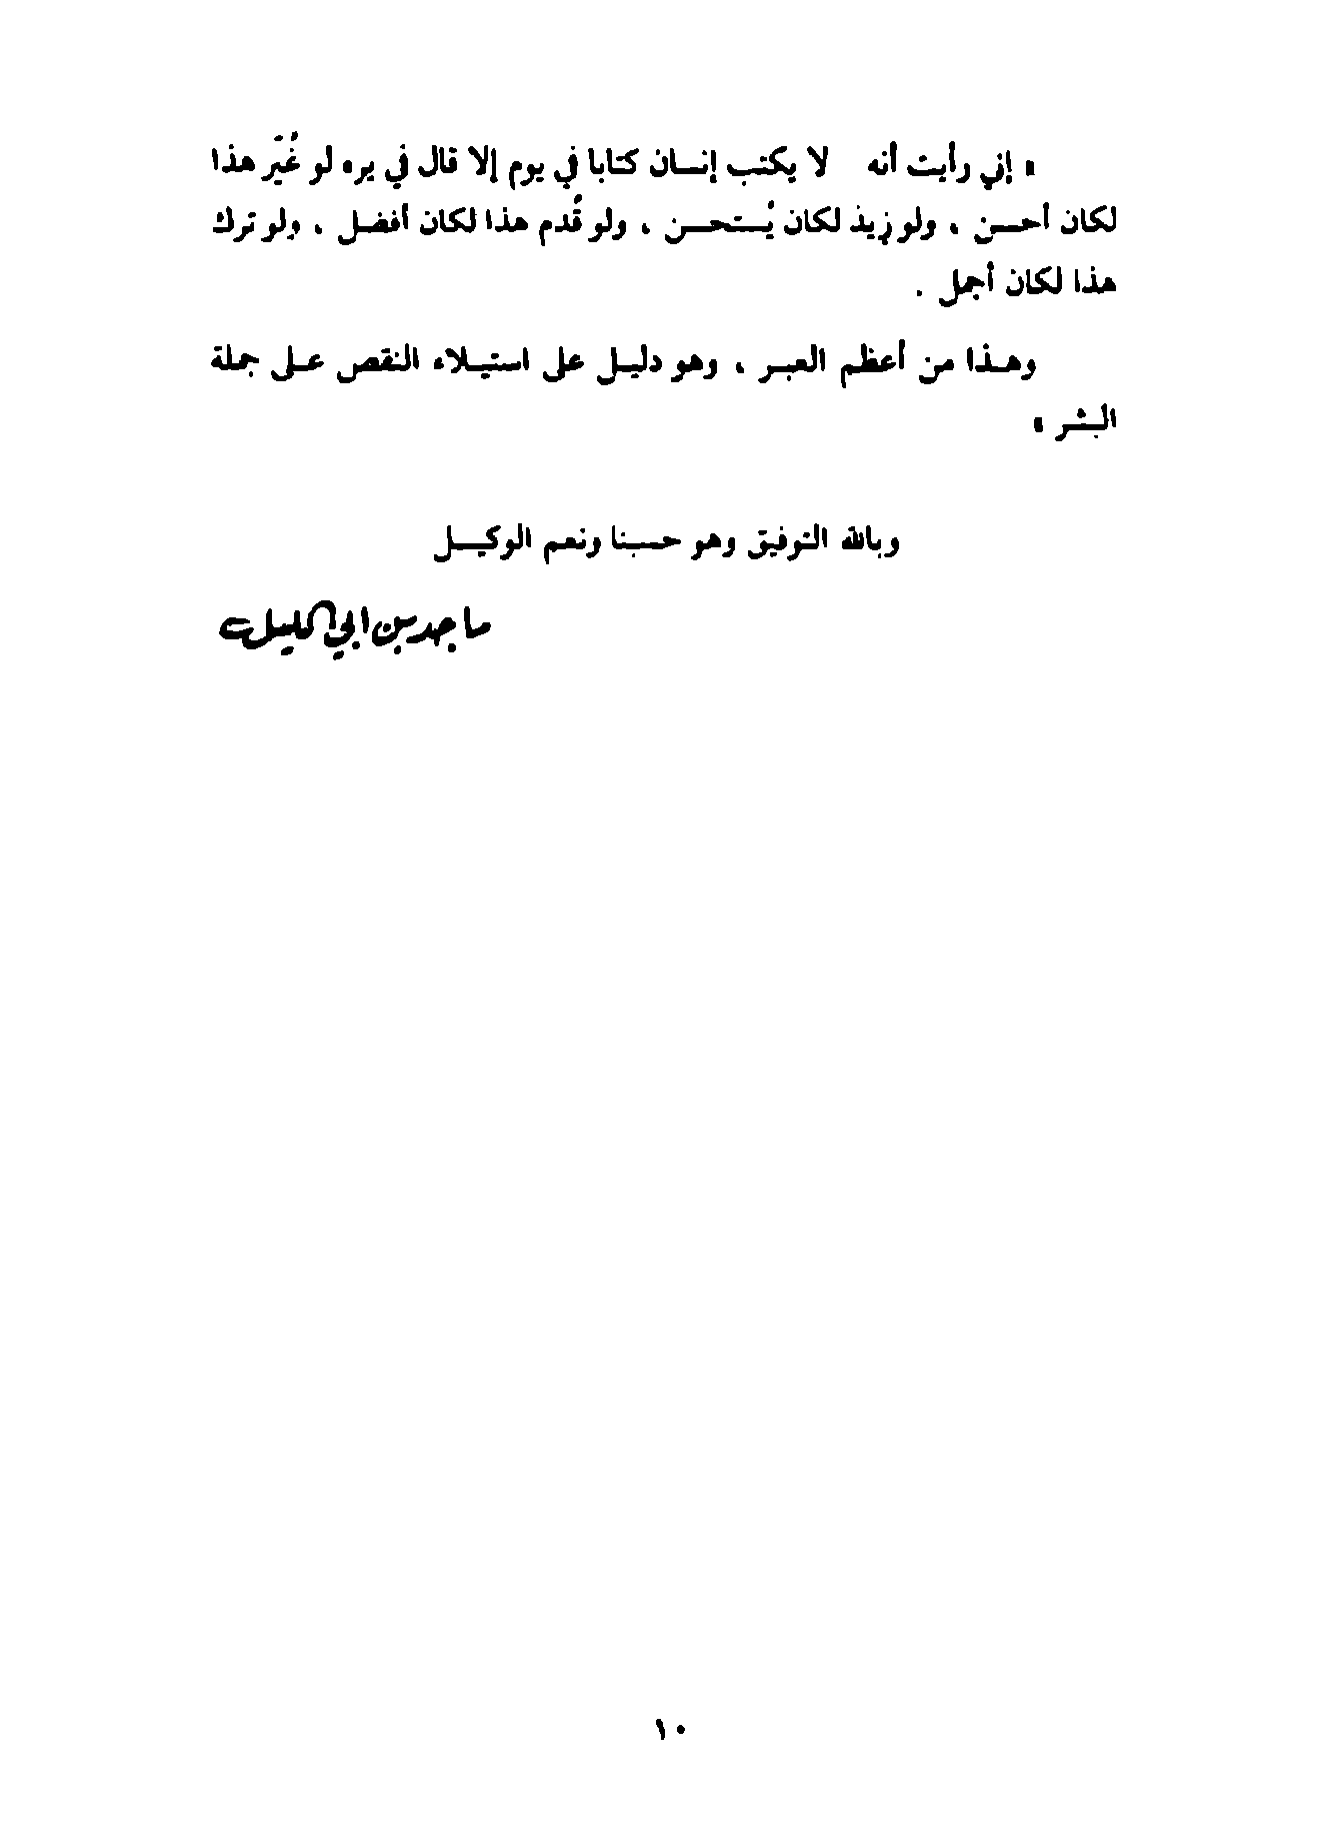 « إني رأيت أنه لا يكتب إنسان كتابا في يوم إلا قال في يره لو غُيّر هذا
لكان أحسن ، ولو زيد لكان يُستحسن ، ولو قُدم هذا لكان أفضل ، ولو ترك
هذا لكان أجمل .
وهذا من أعظم العبر ، وهو دليل على استيلاء النقص على جملة
البشر »
وبالله التوفيق وهو حسبنا ونعم الوكيل
ماجد بن ابي
١٠